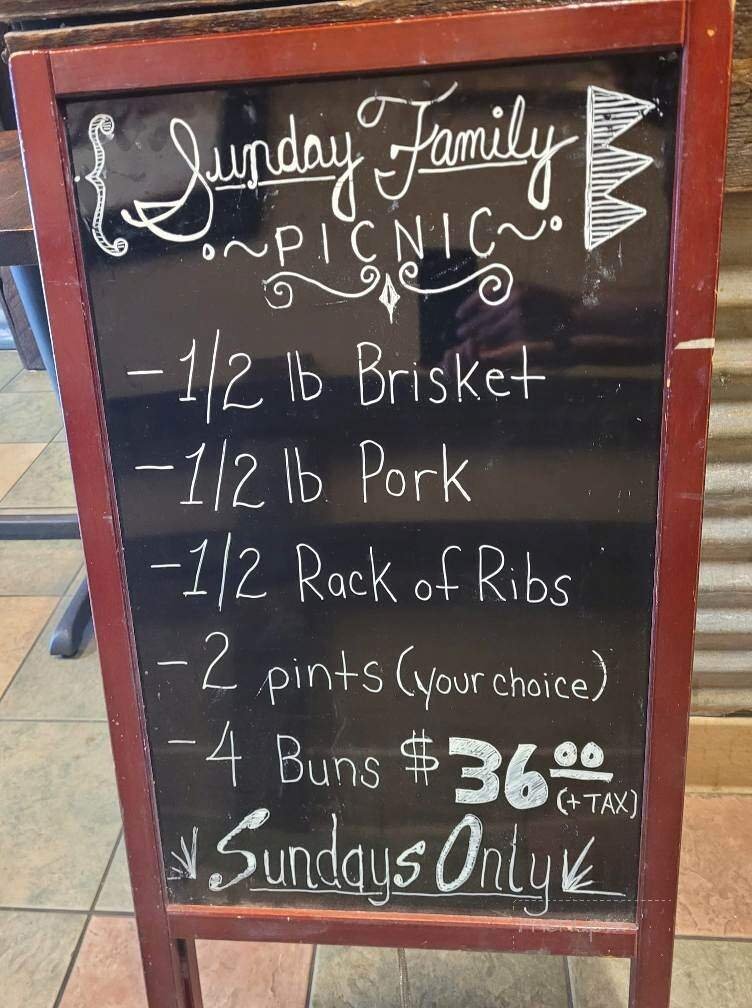 Sunday Family
~PICNIC~
- 1/2 lb Brisket
- 1/2 lb Pork
- 1/2 Rack of Ribs
- 2 pints (your choice)
- 4 Buns $36.00
(+TAX)
Sundays Only